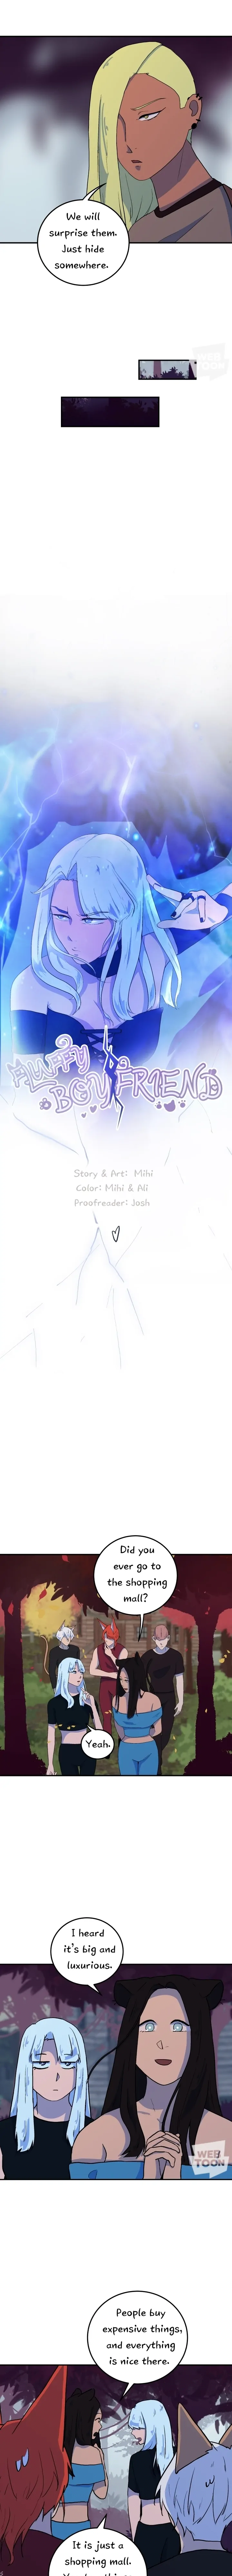 We will
surprise them.
Just hide
somewhere.
WEB
TOON
FLUFFY
BOYFRIEND
Story & Art: Mihi
Color: Mihi & Ali
Proofreader: Josh
Did you
ever go to
the shopping
mall?
Yeah.
I heard
it's big and
luxurious.
WEB
TOON
People buy
expensive things,
and everything
is nice there.
It is just a
shopping mall.